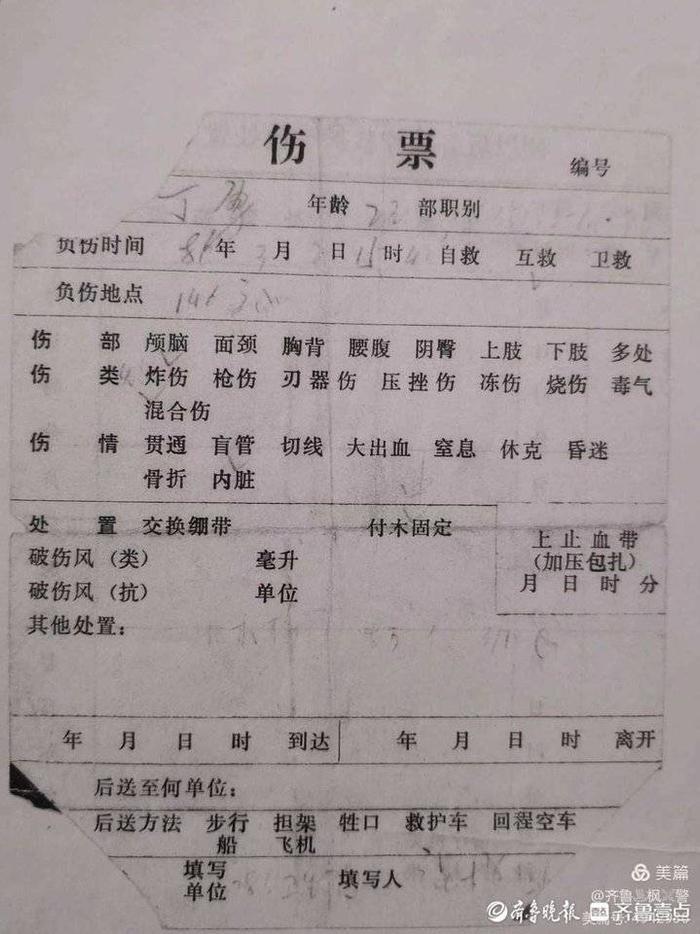 伤 票
编号
丁 年龄 23 部职别
负伤时间 86年 3月 日 时 自救 互救 卫救
负伤地点 146
伤部 颅脑 面颈 胸背 腰腹 阴臀 上肢 下肢 多处
伤类 炸伤 枪伤 刃器伤 压挫伤 冻伤 烧伤 毒气
混合伤
伤情 贯通 盲管 切线 大出血 窒息 休克 昏迷
骨折 内脏
处置 交换绷带 付木固定
上止血带
(加压包扎)
月 日 时 分
破伤风(类) 毫升
破伤风(抗) 单位
其他处置:
年 月 日 时 到达 年 月 日 时 离开
后送至何单位:
后送方法 步行 担架 牲口 救护车 回程空车
船 飞机
填写
单位
填写人
美篇
@齐鲁 枫 警
齐鲁晚报 齐鲁壹点